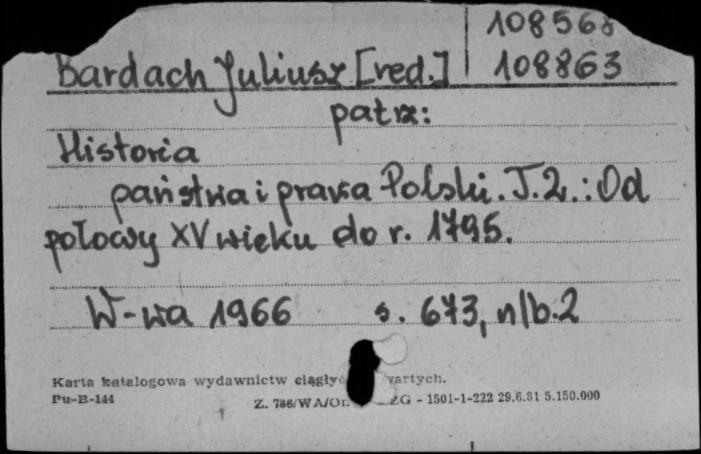 108568
Bardach Juliusz [red.] 108863
patrz:
Historia
państwa i prawa Polski. T.2.: Od
połowy XV wieku do r. 1795.
W-wa 1966 s. 673, nlb.2
Karta katalogowa wydawnictw
Pu-B-144 Z. 786/WA/ ZG - 1501-1-222 29.6.81 5.150.000